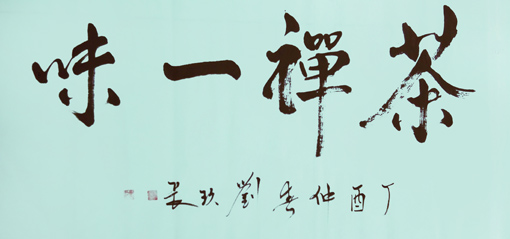 茶禪一味
丁酉仲春劉玖